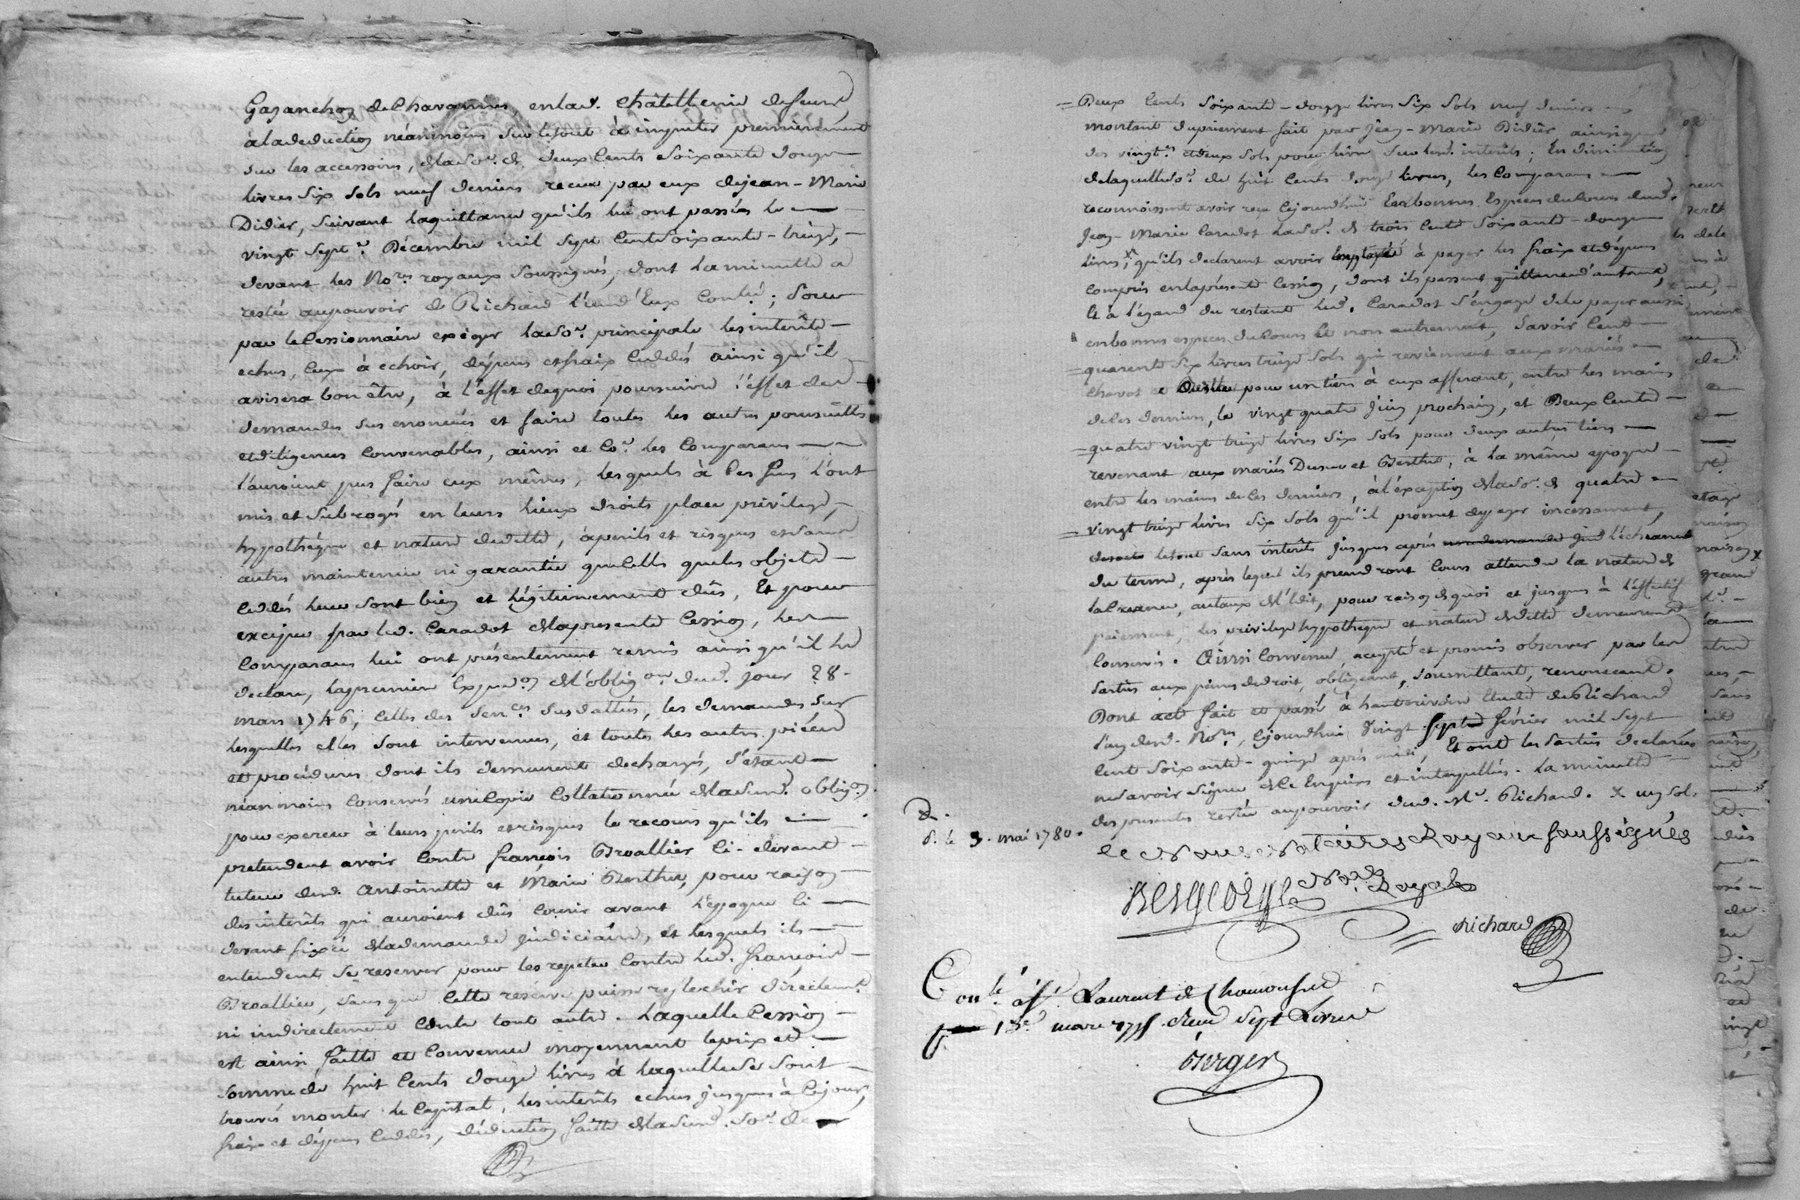 de Chavannes en lad. Châtellenie de
à la deduction néanmoins sur le tout à imputer premierement
sur les accessoires, de la so.e de deux Cents soixante douze
livres six sols neuf deniers receux par eux de jean-Marie
Didier, suivant la quittance qu'ils lui ont passée le
vingt sept.e Décembre mil sept Cent soixante-treize,
devant les No.res royaux soussignés, dont la minutte a
restée au pouvoir de Richard l'un d'Eux ; pour
par le Cessionnaire exiger la so.e principale les intérêts
echus, ceux à echoir, dépens et fraix cedés ainsi qu'il
avisera bon être, à l'effet de quoi poursuivre l'effet des
demandes sus enoncées et faire toutes les autres poursuittes
et diligences convenables, ainsi et co.e les Comparans
l'auroient pus faire eux mêmes, lesquels à ces fins l'ont
mis et subrogé en leurs lieux droits place privilege,
hypothéque et nature de dette, à perils et risques et sans
autre maintenue ni garantie que celle que les objets
cedés leur sont bien et légitimement dûs, Et pour
exciper par led. Caradot de la presente Cession, les
Comparans lui ont présentement remis ainsi qu'il le
declare, la premiere Exped.on de l'oblig.on dud. jour 28.
mars 1746, celles des sen.ces susdattées, les demandes sur
lesquelles elles sont intervenues, et toutes les autres piéces
et procédures dont ils demeurent dechargés, s'étant
néanmoins conservés une Copie Collationnée de la sud. oblig.on
pour exercer à leurs perils et risques le recours qu'ils
pretendent avoir contre françois Broallier ci-devant
tuteur desd. Antoinette et Marie Berthet, pour raison
des intérêts qui auroient dûs courir avant l'Epoque ci
devant fixée de la demande judiciaire, et lesquels ils
entendent se reserver pour les repeter contre led. françois
Broallier, sans que cette reserve puisse reflechir directem.t
ni indirectement contre tout autre. Laquelle Cession
est ainsi faitte et convenue moyennant le prix et
somme de huit Cents douze livres à laquelle se sont
trouvés monter le Capital, les intérêts echus jusques à ce jour,
fraix et dépens cedés, déduction faitte de la sud. so.e de
Deux Cents soixante-douze livres six sols neuf deniers
montant du paiement fait par Jean-Marie Didier ainsi que
des vingt.es et deux sols pour livre sur lesd. intérêts; En diminution
de laquelle so.e de huit Cents douze livres, les Comparans
reconnoissent avoir receu cejourdhui En bonnes Especes du Cours dud.
Jean-Marie Caradot la so.e de trois Cents soixante-douze
livres, qu'ils declarent avoir employée à payer les fraix et dépens
compris en la présente Cession, dont ils passent quittance d'autant,
Et à l'égard du restant led. Caradot s'engage de le payer aussi
en bonnes especes du Cours Et non autrement, savoir Cent
quarente six livres treize sols qui reviennent aux mariés
Chavot e pour un tiers à eux afferant, entre les mains
de ces derniers, le vingt quatre juin prochain, et Deux Cents
quatre vingt treize livres six sols pour deux autres tiers
revenant aux mariés et Berthet, à la même epoque
entre les mains de ces derniers, à l'éxception de la so.e de quatre
vingt treize livres six sols qu'il promet de payer incessament,
le tout sans intérêts jusques après l'échéance
du terme, après lequel ils prendront cours attendu la nature de
la Créance, au taux de l'Edit, pour raison de quoi et jusques à l'effectif
paiement, les privilege hypothéque et nature de dette demeurent
conservés. Ainsi convenu, accepté et promis observer par les
parties aux peines de droit, obligeant, soumettant, renonceant.
Dont acte fait et passé à hauterivoire Etude de Richard
l'un desd. No.res, cejourdhui vingt sept février mil sept
Cent soixante-quinze après midi, Et ont les parties declarées
ne savoir signer de ce Enquises et interpellées. La minutte
des présentes restée au pouvoir dud. M.e Richard. X un sol.
D. le 3. mai 1780.
No.re Royal
Richard
Con.lé à St. Laurent de Chamousset
le mars 1775. Receu sept livres
Berger